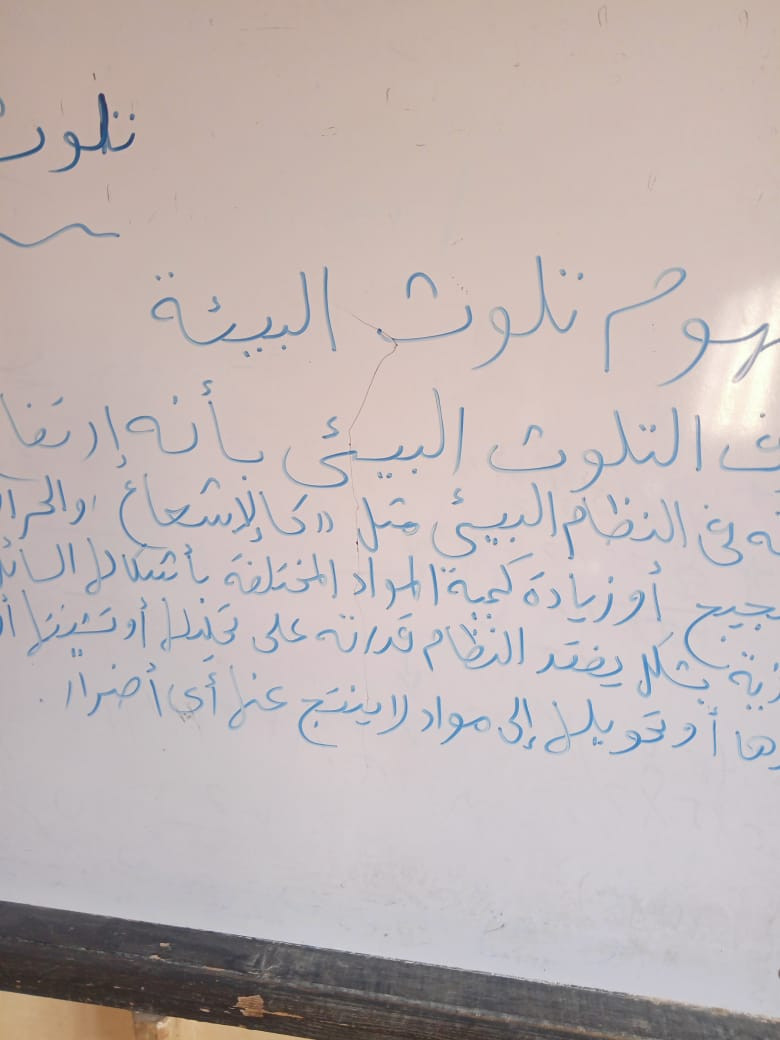 تلوث
هوم تلوث البيئة
ف التلوث البيئى بأنه إرتفا
فى النظام البيئى مثل "كالإشعاع والحرا
جيج أو زيادة كمية المواد المختلفة بأشكالها السائل
زية بشكل يفقد النظام قدراته على تحللها أو تشتيتها أ
رها أو تحويلها إلى مواد لا ينتج عنها أى أضرار.